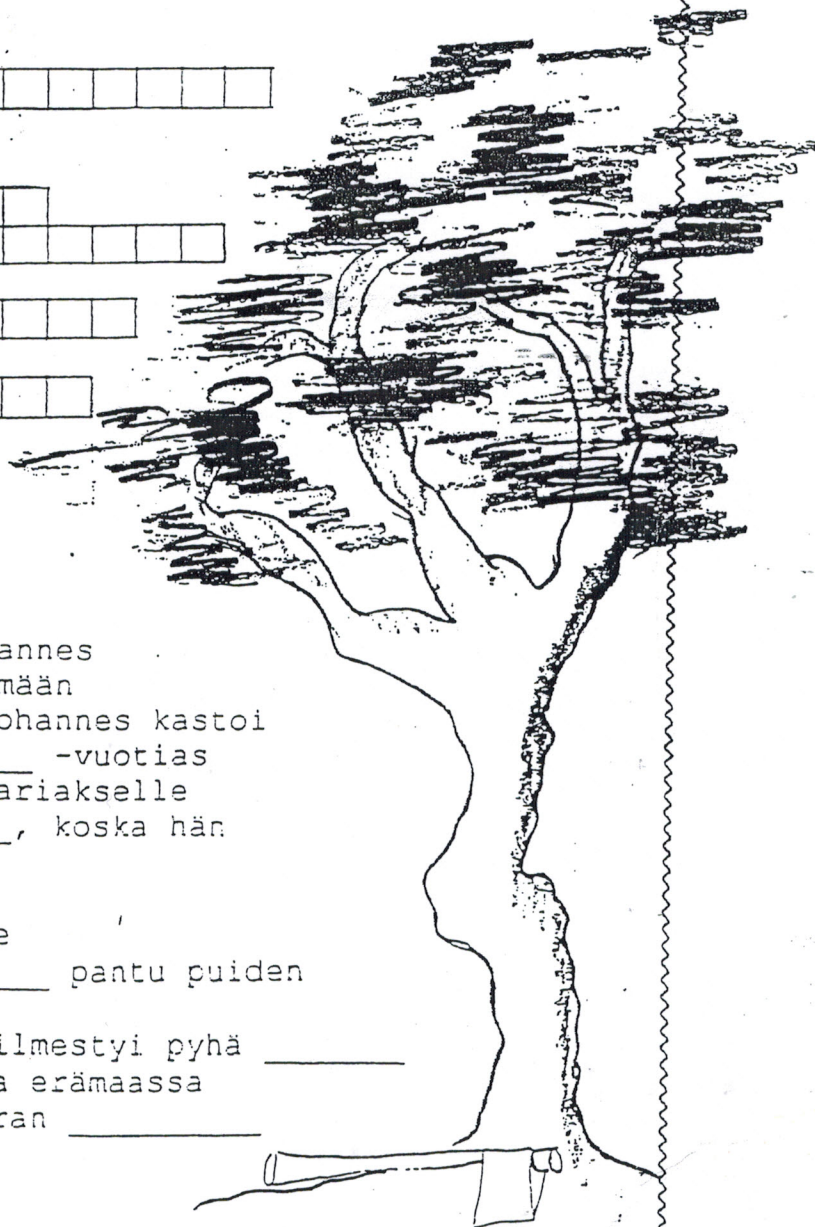 annes
mään
ohannes kastoi
___ -vuotias
ariakselle
_, koska hän
e
___ pantu puiden
ilmestyi pyhä ________
a erämaassa
ran ___________